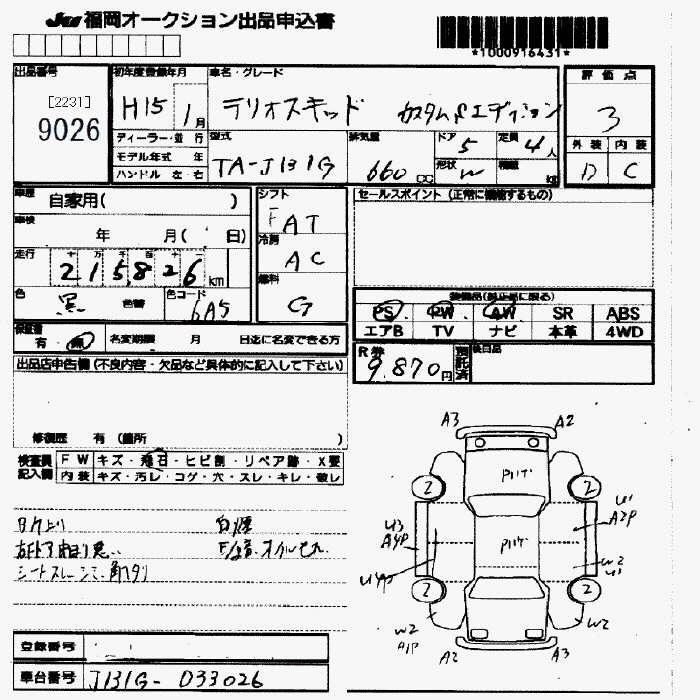 JU 福岡オークション出品申込書
*1000916431*
出品番号
[2231]
9026
初年度登録年月
H15 1月
車名・グレード
テリオスキッド カスタムSエディション
評価点
3
外装 内装
D C
ディーラー・並行
モデル年式 年
ハンドル 左・右
型式
TA-J131G
排気量
660 cc
ドア
5
定員
4人
形状
W
積載
kg
車歴
自家用( )
車検
年 月( 日)
走行
十 万 千 百 十 一
215826 km
色
黒 色替
色コード
6A5
シフト
FAT
冷房
AC
燃料
G
セールスポイント (正常に機能するもの)
装備品(純正品に限る)
PS PW AW SR ABS
エアB TV ナビ 本革 4WD
保証書
有・無
名変期限 月 日迄に名変できる方
R券
9,870円
預託済
後日品
出品店申告欄 (不良内容・欠品など具体的に記入して下さい)
修復歴 有 (箇所 )
検査員記入欄
FW キズ・飛石・ヒビ割・リペア跡・X要
内装 キズ・汚レ・コゲ・穴・スレ・キレ・破レ
白煙
シートスレ
A3 A2
2 2
U3
A4P
U1
A2P
U4P
W2
U1
2 2
W2
A1P
W2
A2 A3
登録番号
車台番号
J131G-D33026